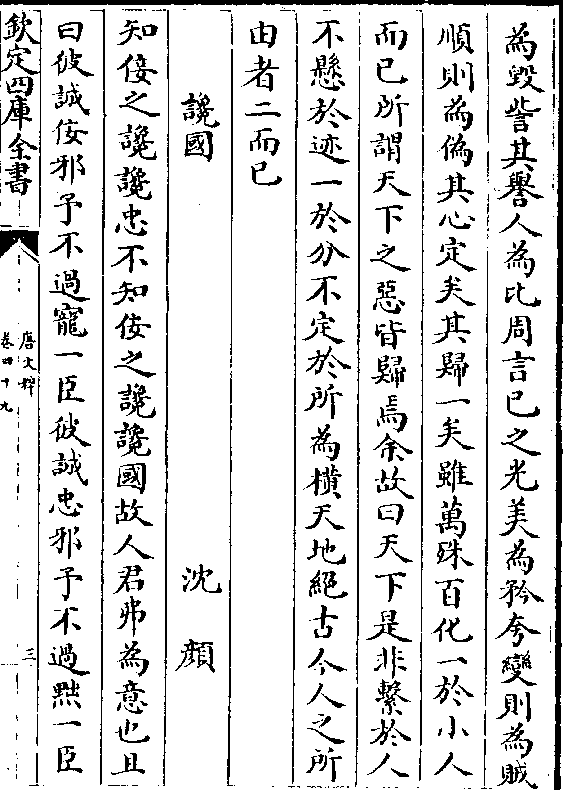 為毀訾其譽人為比周言已之光美為矜夸變則為賊
順則為偽其心定矣其歸一矣雖萬殊百化一於小人
而已所謂天下之惡皆歸焉余故曰天下是非繫於人
不懸於迹一於分不定於所為橫天地絕古今人之所
由者二而已
讒國　沈顔
知佞之讒讒忠不知佞之讒讒國故人君弗為意也且
曰彼誠佞邪予不過寵一臣彼誠忠邪予不過黜一臣
欽定四庫全書
唐文粹
卷四十九
三